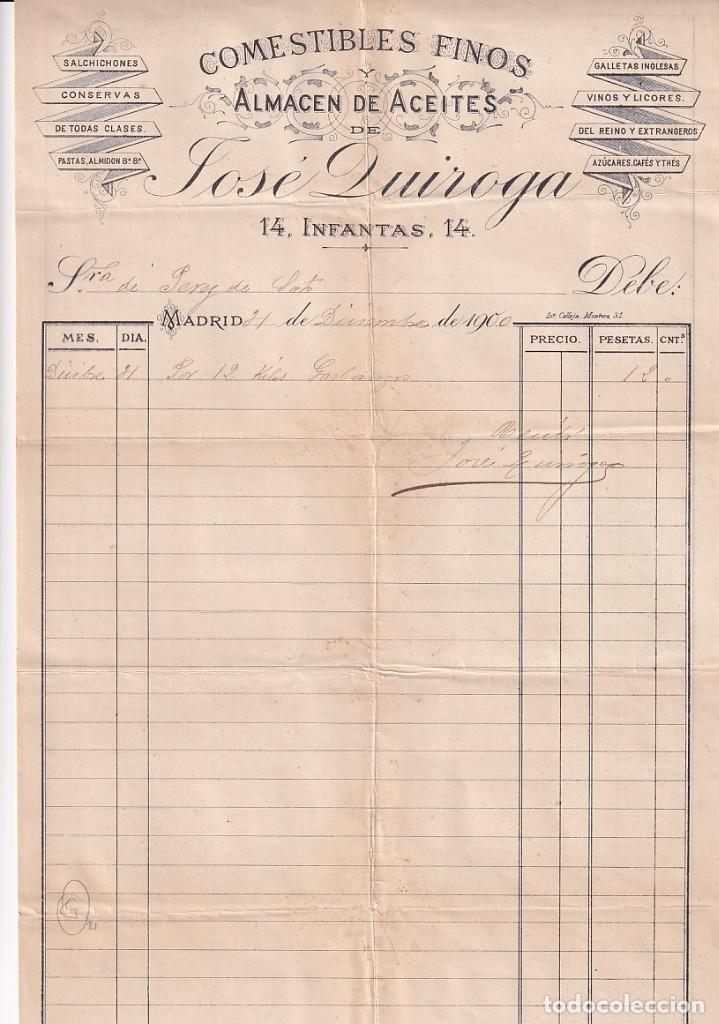 COMESTIBLES FINOS
Y
ALMACEN DE ACEITES
DE
José Quiroga
14, INFANTAS, 14.
SALCHICHONES
CONSERVAS
DE TODAS CLASES.
PASTAS, ALMIDON &ª &ª
GALLETAS INGLESAS
VINOS Y LICORES.
DEL REINO Y EXTRANGEROS
AZÚCARES, CAFÉS Y THÉS
Sra de Perez de Debe:
MADRID 21 de Diciembre de 1900
Lit. Calleja. Montera 51.
MES. DIA. PRECIO. PESETAS. CNTS
Dicibre 21 Por 12 Kilos Garbanzos 12
Recibí
José Quiroga
21
todocoleccion